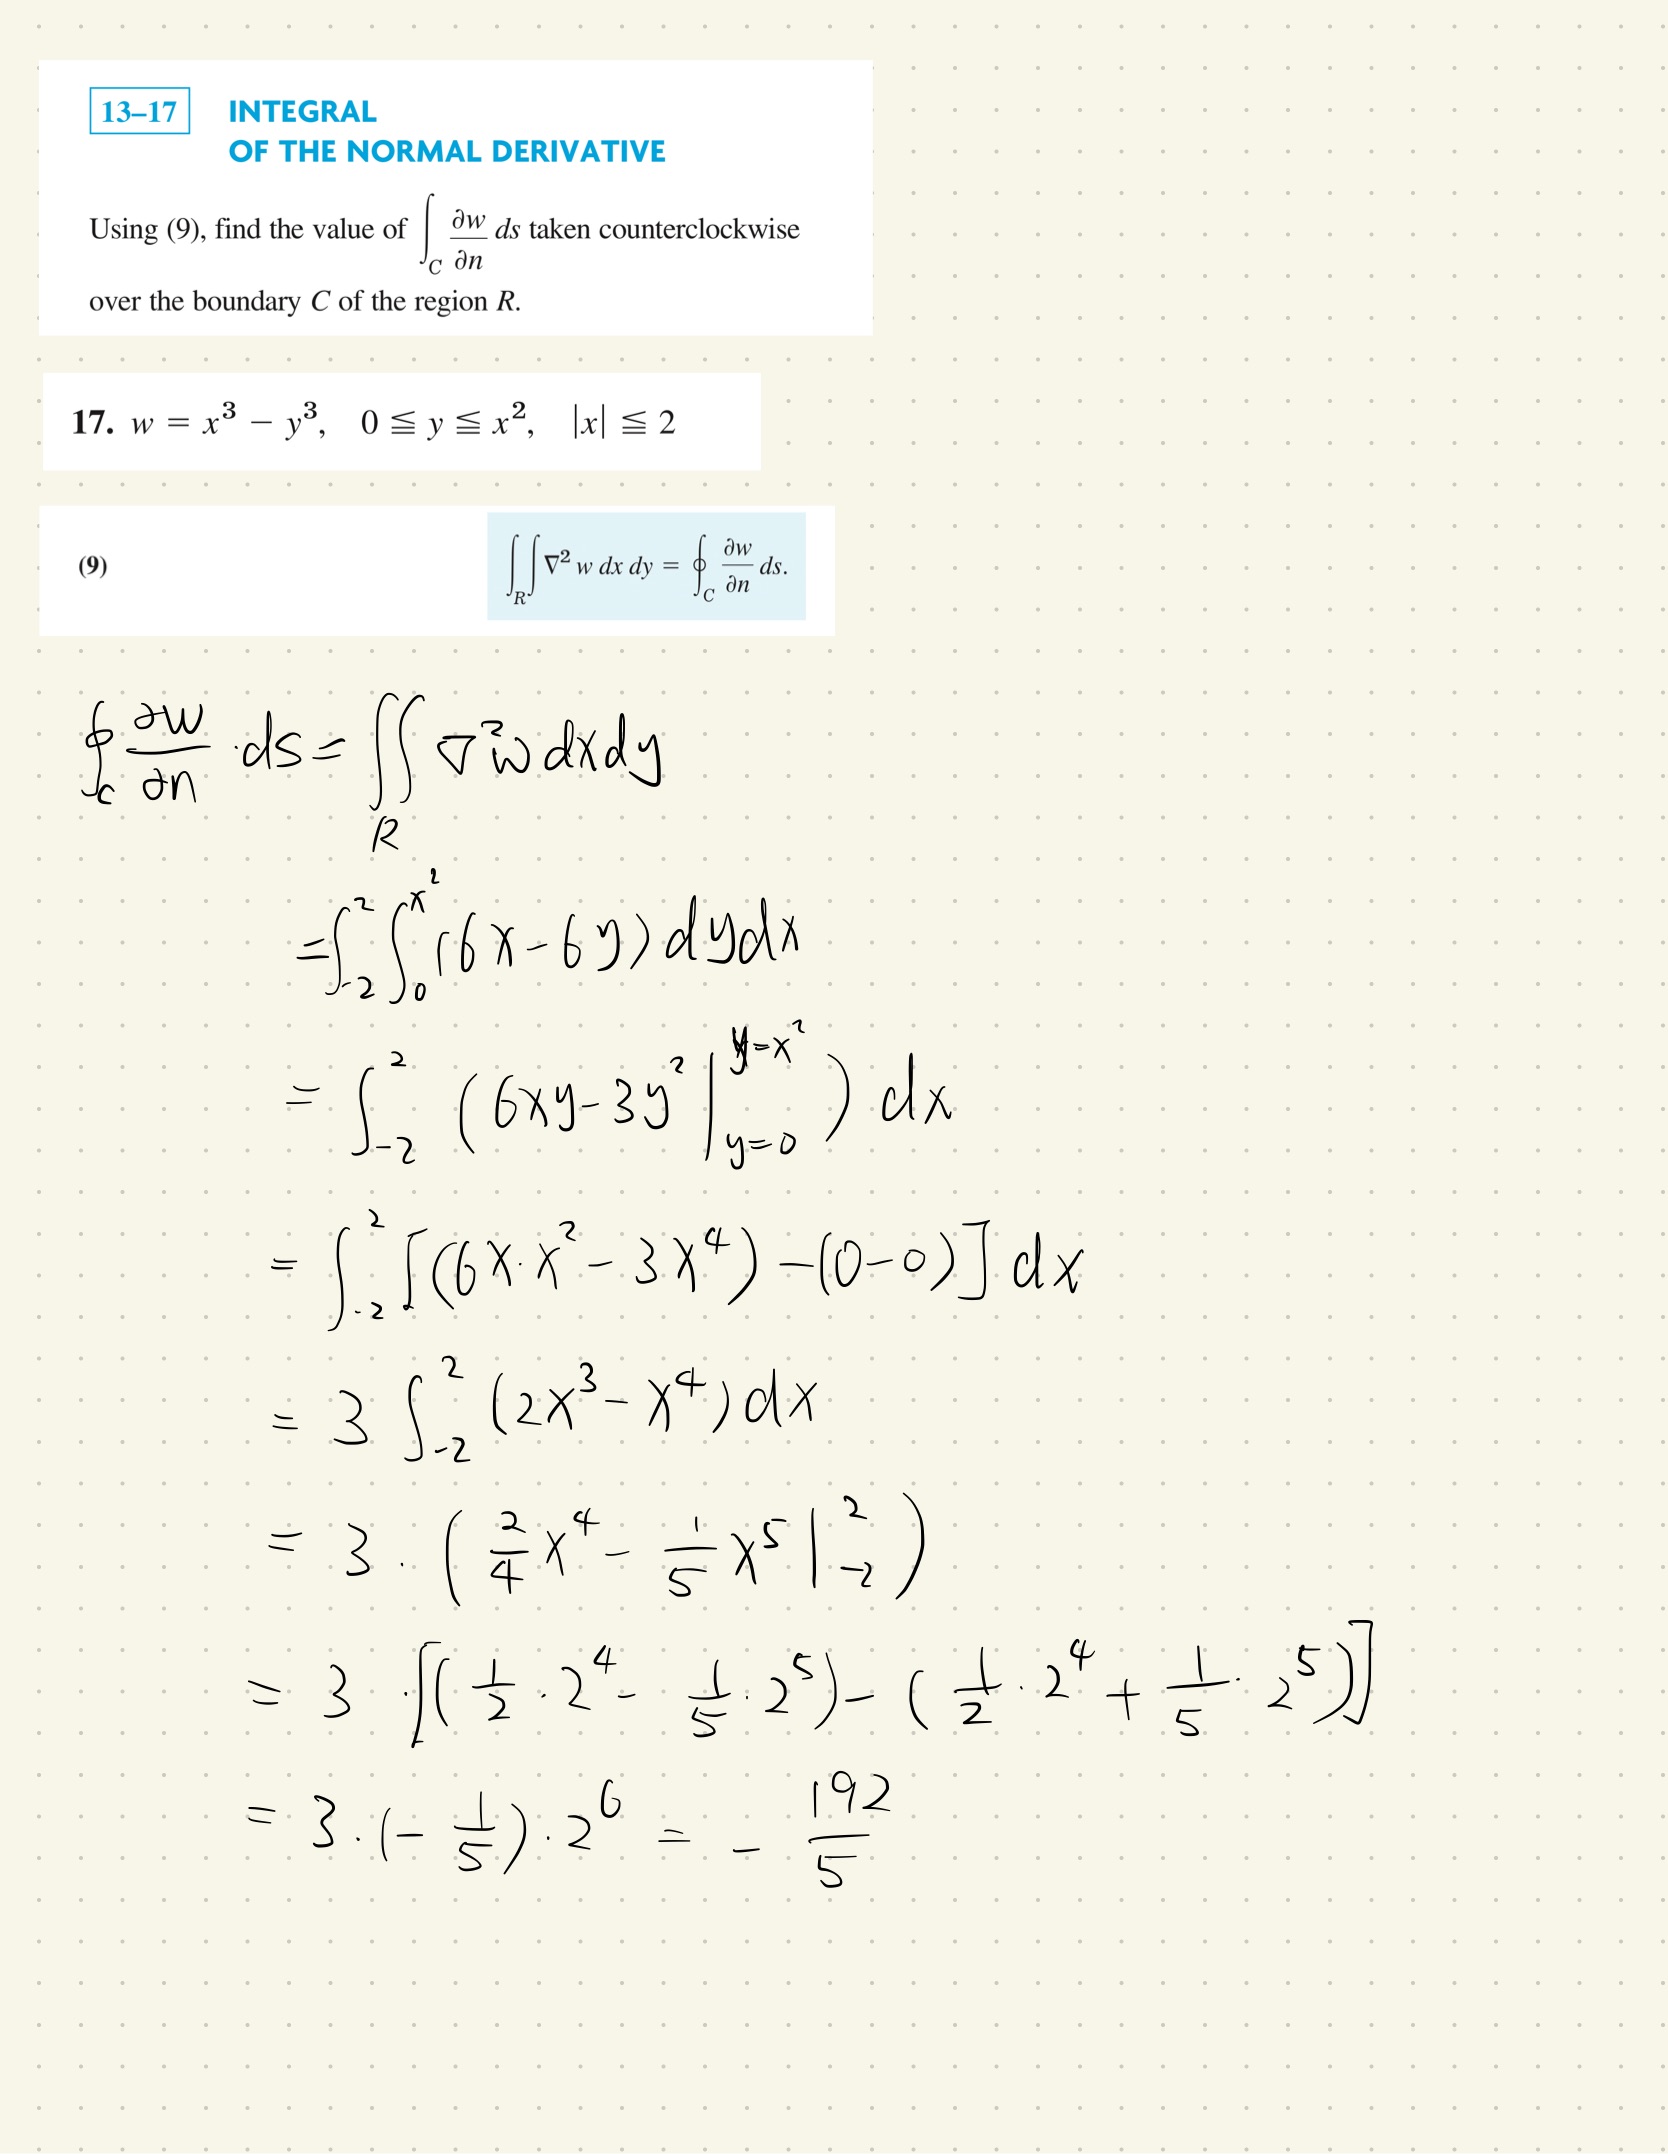 13–17 INTEGRAL
OF THE NORMAL DERIVATIVE
Using (9), find the value of ∫_C ∂w/∂n ds taken counterclockwise
over the boundary C of the region R.
17. w = x³ − y³, 0 ≦ y ≦ x², |x| ≦ 2
(9) ∫∫_R ∇² w dx dy = ∮_C ∂w/∂n ds.
∮_C ∂w/∂n · ds = ∬_R ∇²w dxdy
= ∫_{-2}^{2} ∫_0^{x²} (6x-6y) dydx
= ∫_{-2}^{2} (6xy-3y² |_{y=0}^{y=x²}) dx
= ∫_{-2}^{2} [(6x·x² - 3x⁴) - (0-0)] dx
= 3 ∫_{-2}^{2} (2x³ - x⁴) dx
= 3 · (2/4 x⁴ - 1/5 x⁵ |_{-2}^{2})
= 3 · [(1/2 · 2⁴ - 1/5 · 2⁵) - (1/2 · 2⁴ + 1/5 · 2⁵)]
= 3 · (- 1/5) · 2⁶ = - 192/5